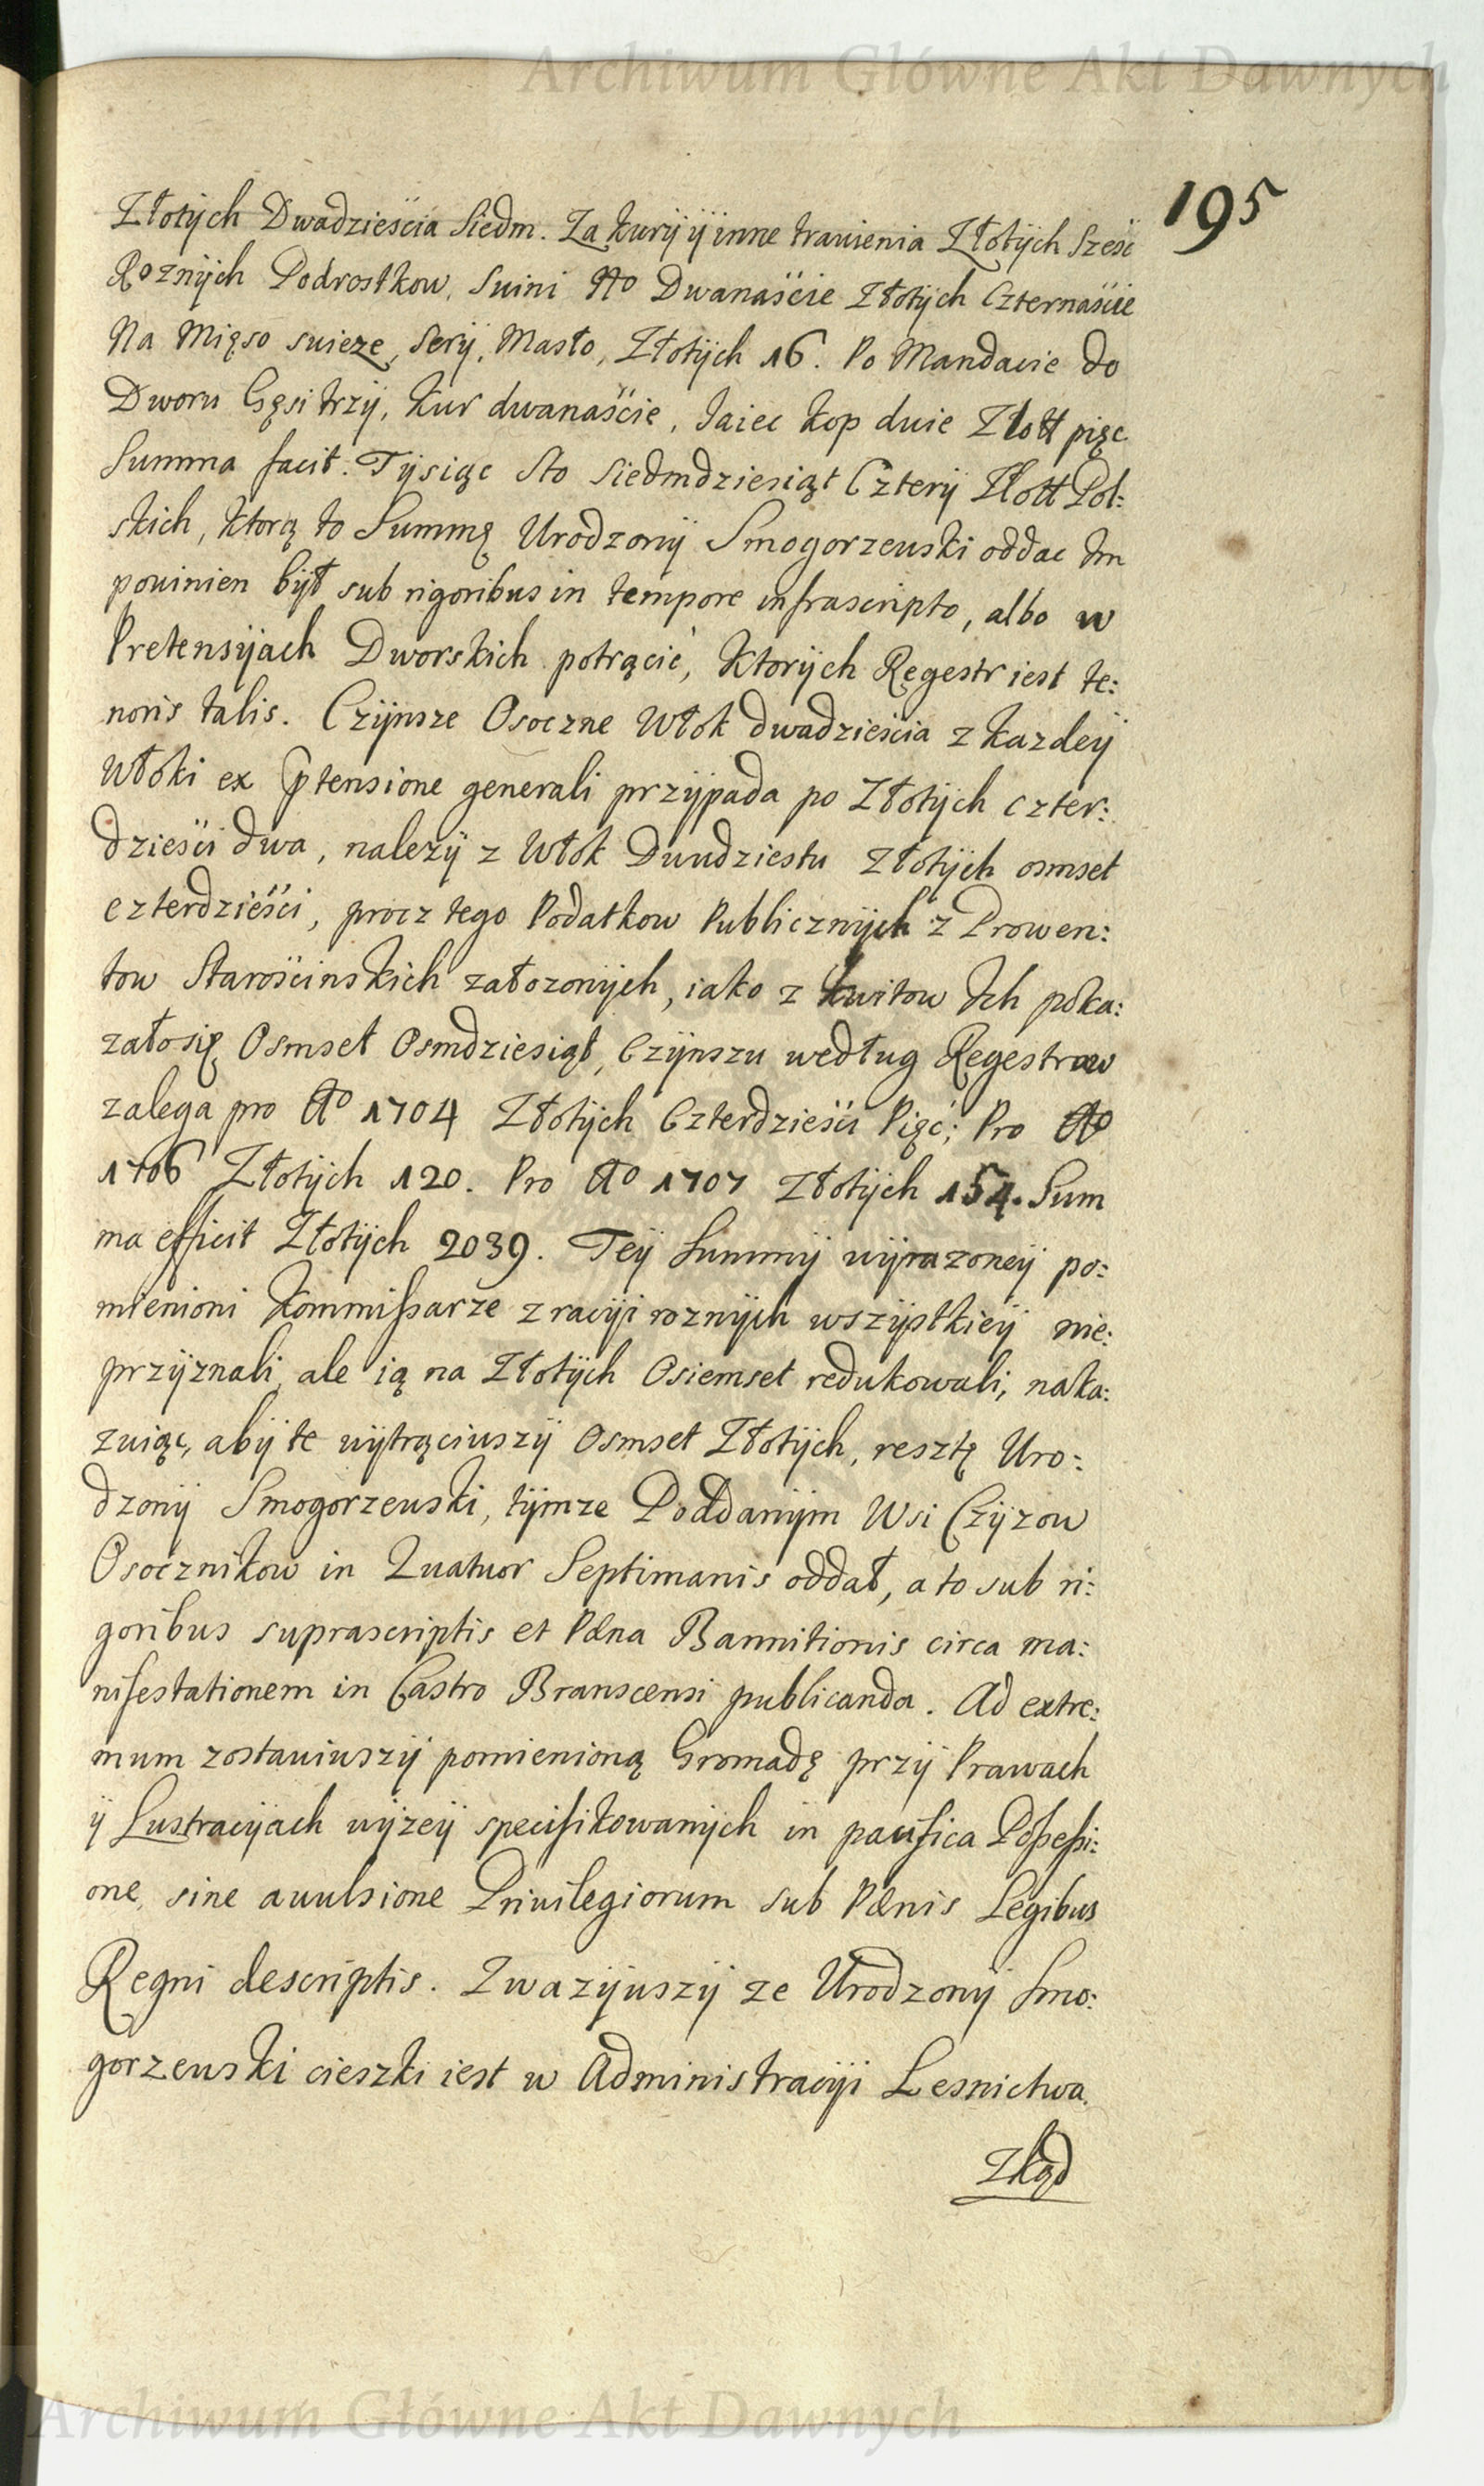 Archiwum Główne Akt Dawnych
195
Złotÿch Dwadzieścia Siedm. Za Kurÿ ÿ inne trawienia Złotÿch Szesć
Roznÿch Podrostkow, Swini No Dwanaście Złotÿch Czternaście
Na Mięso swieze, Serÿ, Masło, Złotÿch 16. Po Mandacie do
Dworu Gęsi trzÿ, Kur dwanaście, Jaiec Kop dwie Złott pięc
Summa facit. Tÿsiąc Sto Siedmdziesiąt Czterÿ Złott Pol:
skich, Ktorą to Summę Urodzonÿ Smogorzewski oddac Im
powinien bÿł sub rigoribus in tempore infrascripto, albo w
Pretensÿach Dworskich potrącić, Ktorÿch Regestr iest te:
noris talis. Czÿnsze Osoczne Włok dwadzieścia z Kazdeÿ
Włoki ex Ptensione generali przÿpada po Złotÿch czter:
dzieści dwa, nalezÿ z Włok Dwudziestu Złotÿch osmset
czterdzieści, procz tego Podatkow Publicznÿch z Prowen:
tow Starościnskich załozonÿch, iako z Kwitow Ich poka:
załosię Osmset Osmdziesiąt, Czÿnszu według Regestrow
zalega pro Ao 1704 Złotÿch Czterdzieści Pięć; Pro Ao
1706 Złotÿch 120. Pro Ao 1707 Złotÿch 154. Sum
ma efficit Złotÿch 2039. Teÿ Summÿ wÿrazoneÿ po:
mienioni Kommissarze z racÿi roznÿch wszÿstkieÿ nie:
przÿznali, ale ią na Złotÿch Osiemset redukowali, naka:
zuiąc, abÿ te wÿtrąciwszÿ Osmset Złotÿch, resztę Uro:
dzonÿ Smogorzewski, tÿmze Poddanÿm Wsi Czÿzow
Osocznikow in Quatuor Septimanis oddał, a to sub ri:
goribus suprascriptis et Pæna Bannitionis circa ma:
nifestationem in Castro Branscensi publicanda. Ad extre:
mum zostawiwszÿ pomienioną Gromadę przÿ Prawach
ÿ Lustracÿach wÿzeÿ specifikowanÿch in pacifica Possessi:
one, sine avulsione Privilegiorum sub Pænis Legibus
Regni descriptis. Zwazÿwszÿ ze Urodzonÿ Smo:
gorzewski cieszki iest w Administracÿi Lesnictwa.
Zkąd
Archiwum Główne Akt Dawnych